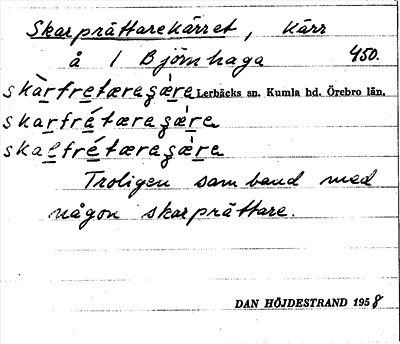 Skarprättarekärret, kärr
å 1 Björnhaga 450.
skàrfretæragæ̀ra Lerbäcks sn. Kumla hd. Örebro län.
skarfrétæragæ̀ra
skalfrétæragæ̀ra
Troligen samband med
någon skarprättare.
DAN HÖJDESTRAND 1958